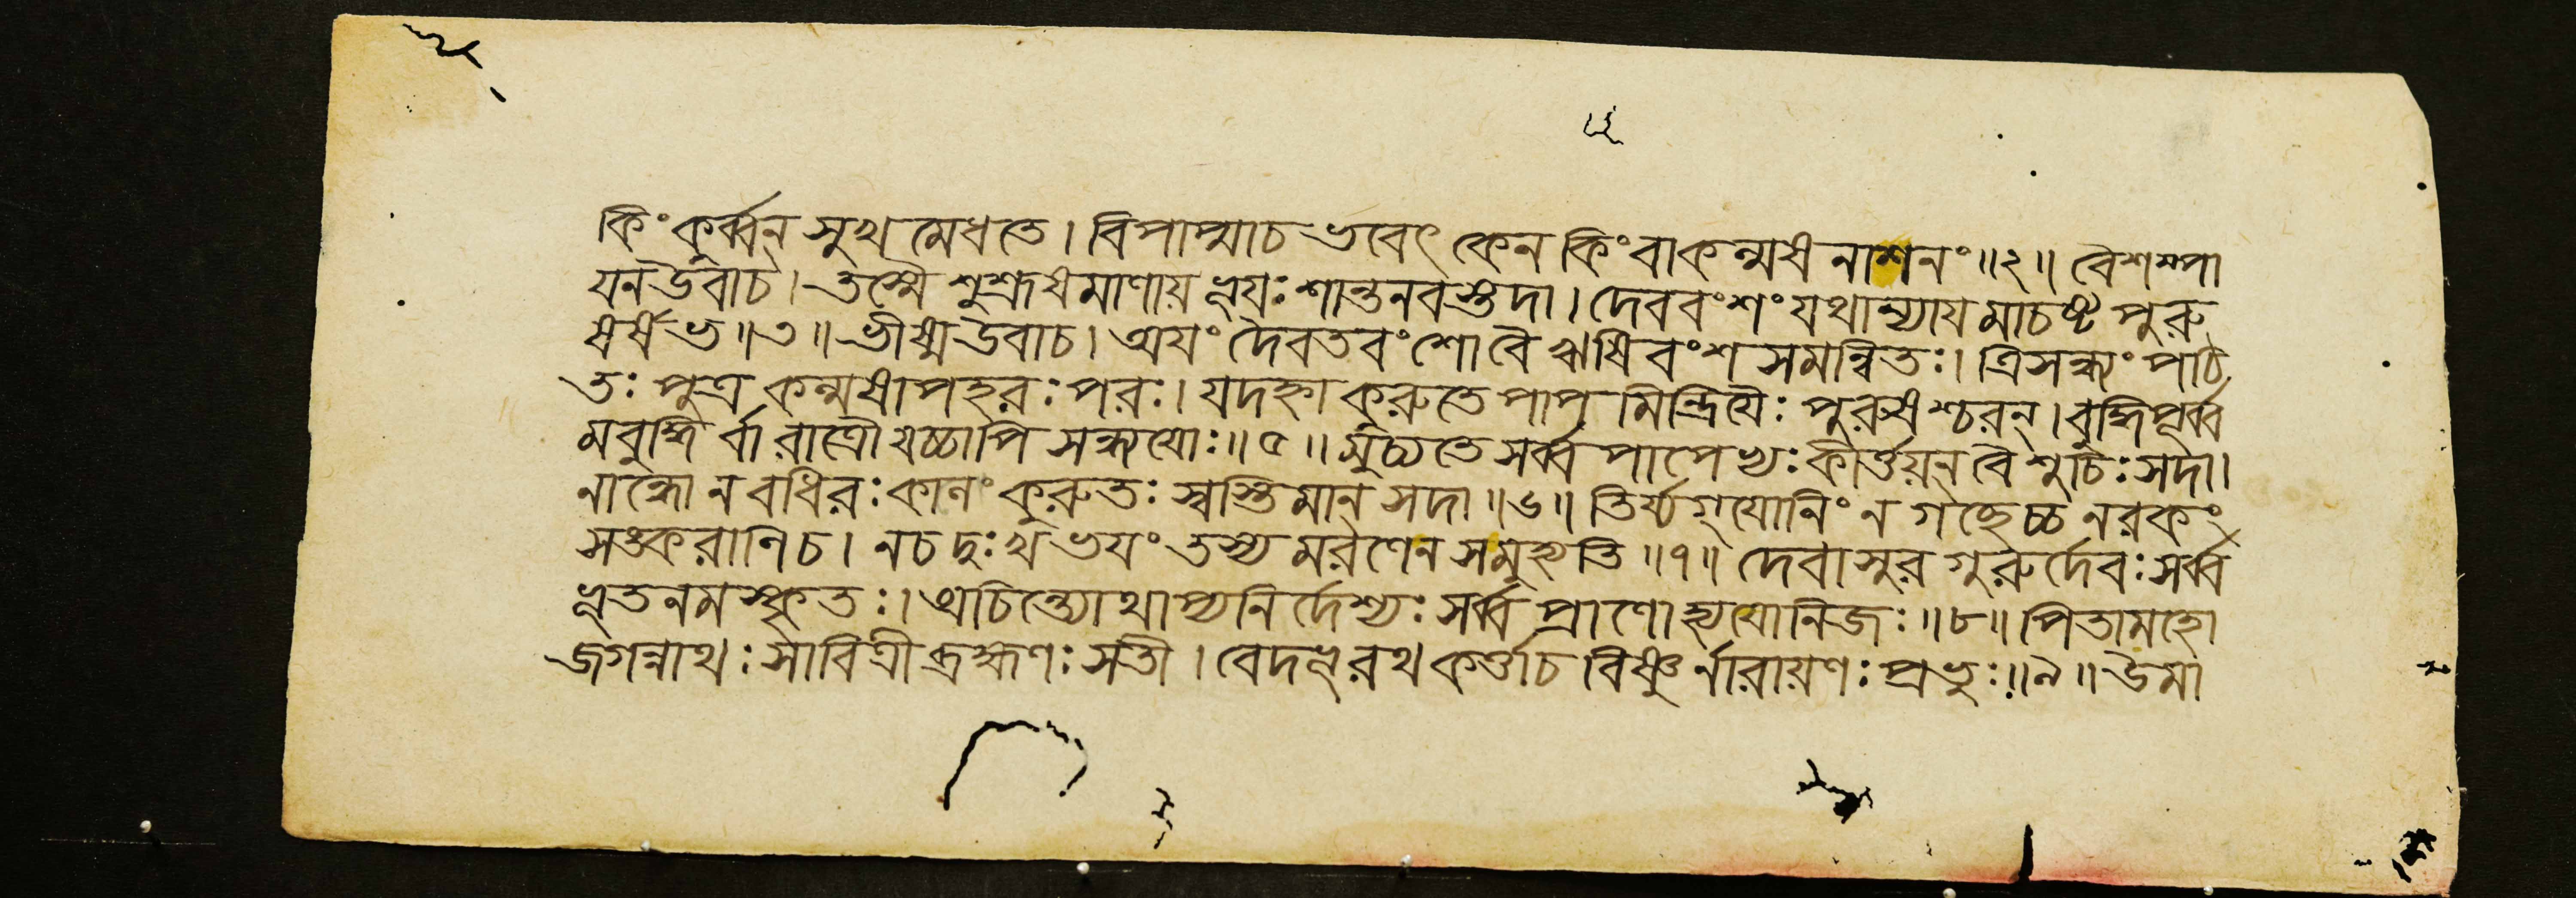 কিং কুর্ব্বন্ সুখ মেধতে। বিপাপ্মাচ ভবেৎ কেন কিং বাকল্মষ নাশনং॥২॥ বৈশম্পা
যনউবাচ। তস্মৈ শুশ্রূষমাণায় ভূয়ঃ শান্তনবস্তদা। দেববংশং যথান্যায মাচষ্ট পুরু
ষর্ষভ॥৩॥ ভীষ্মউবাচ। অযং দৈবতবংশোবৈ ঋষিবংশ সমন্বিতঃ। ত্রিসন্ধ্যং পঠি
তঃ পুত্র কল্মষাপহরঃ পরঃ। যদহ্না কুরুতে পাপ মিন্দ্রিয়ৈঃ পুরুষশ্চরন্। বুদ্ধিপূর্ব্ব
মবুদ্ধি র্বা রাত্রৌ যচ্চাপি সন্ধ্যযোঃ॥৫॥ মুচ্যতে সর্ব্ব পাপেভ্যঃ কীর্ত্তয়ন্ বৈ শুচিঃ সদা।
নান্ধো ন বধিরঃ কানং কুরুতঃ স্বস্তিমান্ সদা॥৬॥ তির্য্যগ্যোনিং ন গচ্ছেচ্চ নরকং
সঙ্করাণি চ। নচ দুঃখ ভযং তস্য মরণেন সমুহ্যতি॥৭॥ দেবাসুর গুরুর্দেবঃ সর্ব্ব
ভূতনমস্কৃতঃ। অচিন্ত্যোথাপ্যনির্দেশ্যঃ সর্ব্ব প্রাণোহ্যযোনিজঃ॥৮॥ পিতামহো
জগন্নাথঃ সাবিত্রী ব্রহ্মণঃ সতী। বেদভূরথ কর্ত্তাচ বিষ্ণুর্নারায়ণঃ প্রভুঃ॥৯॥ উমা